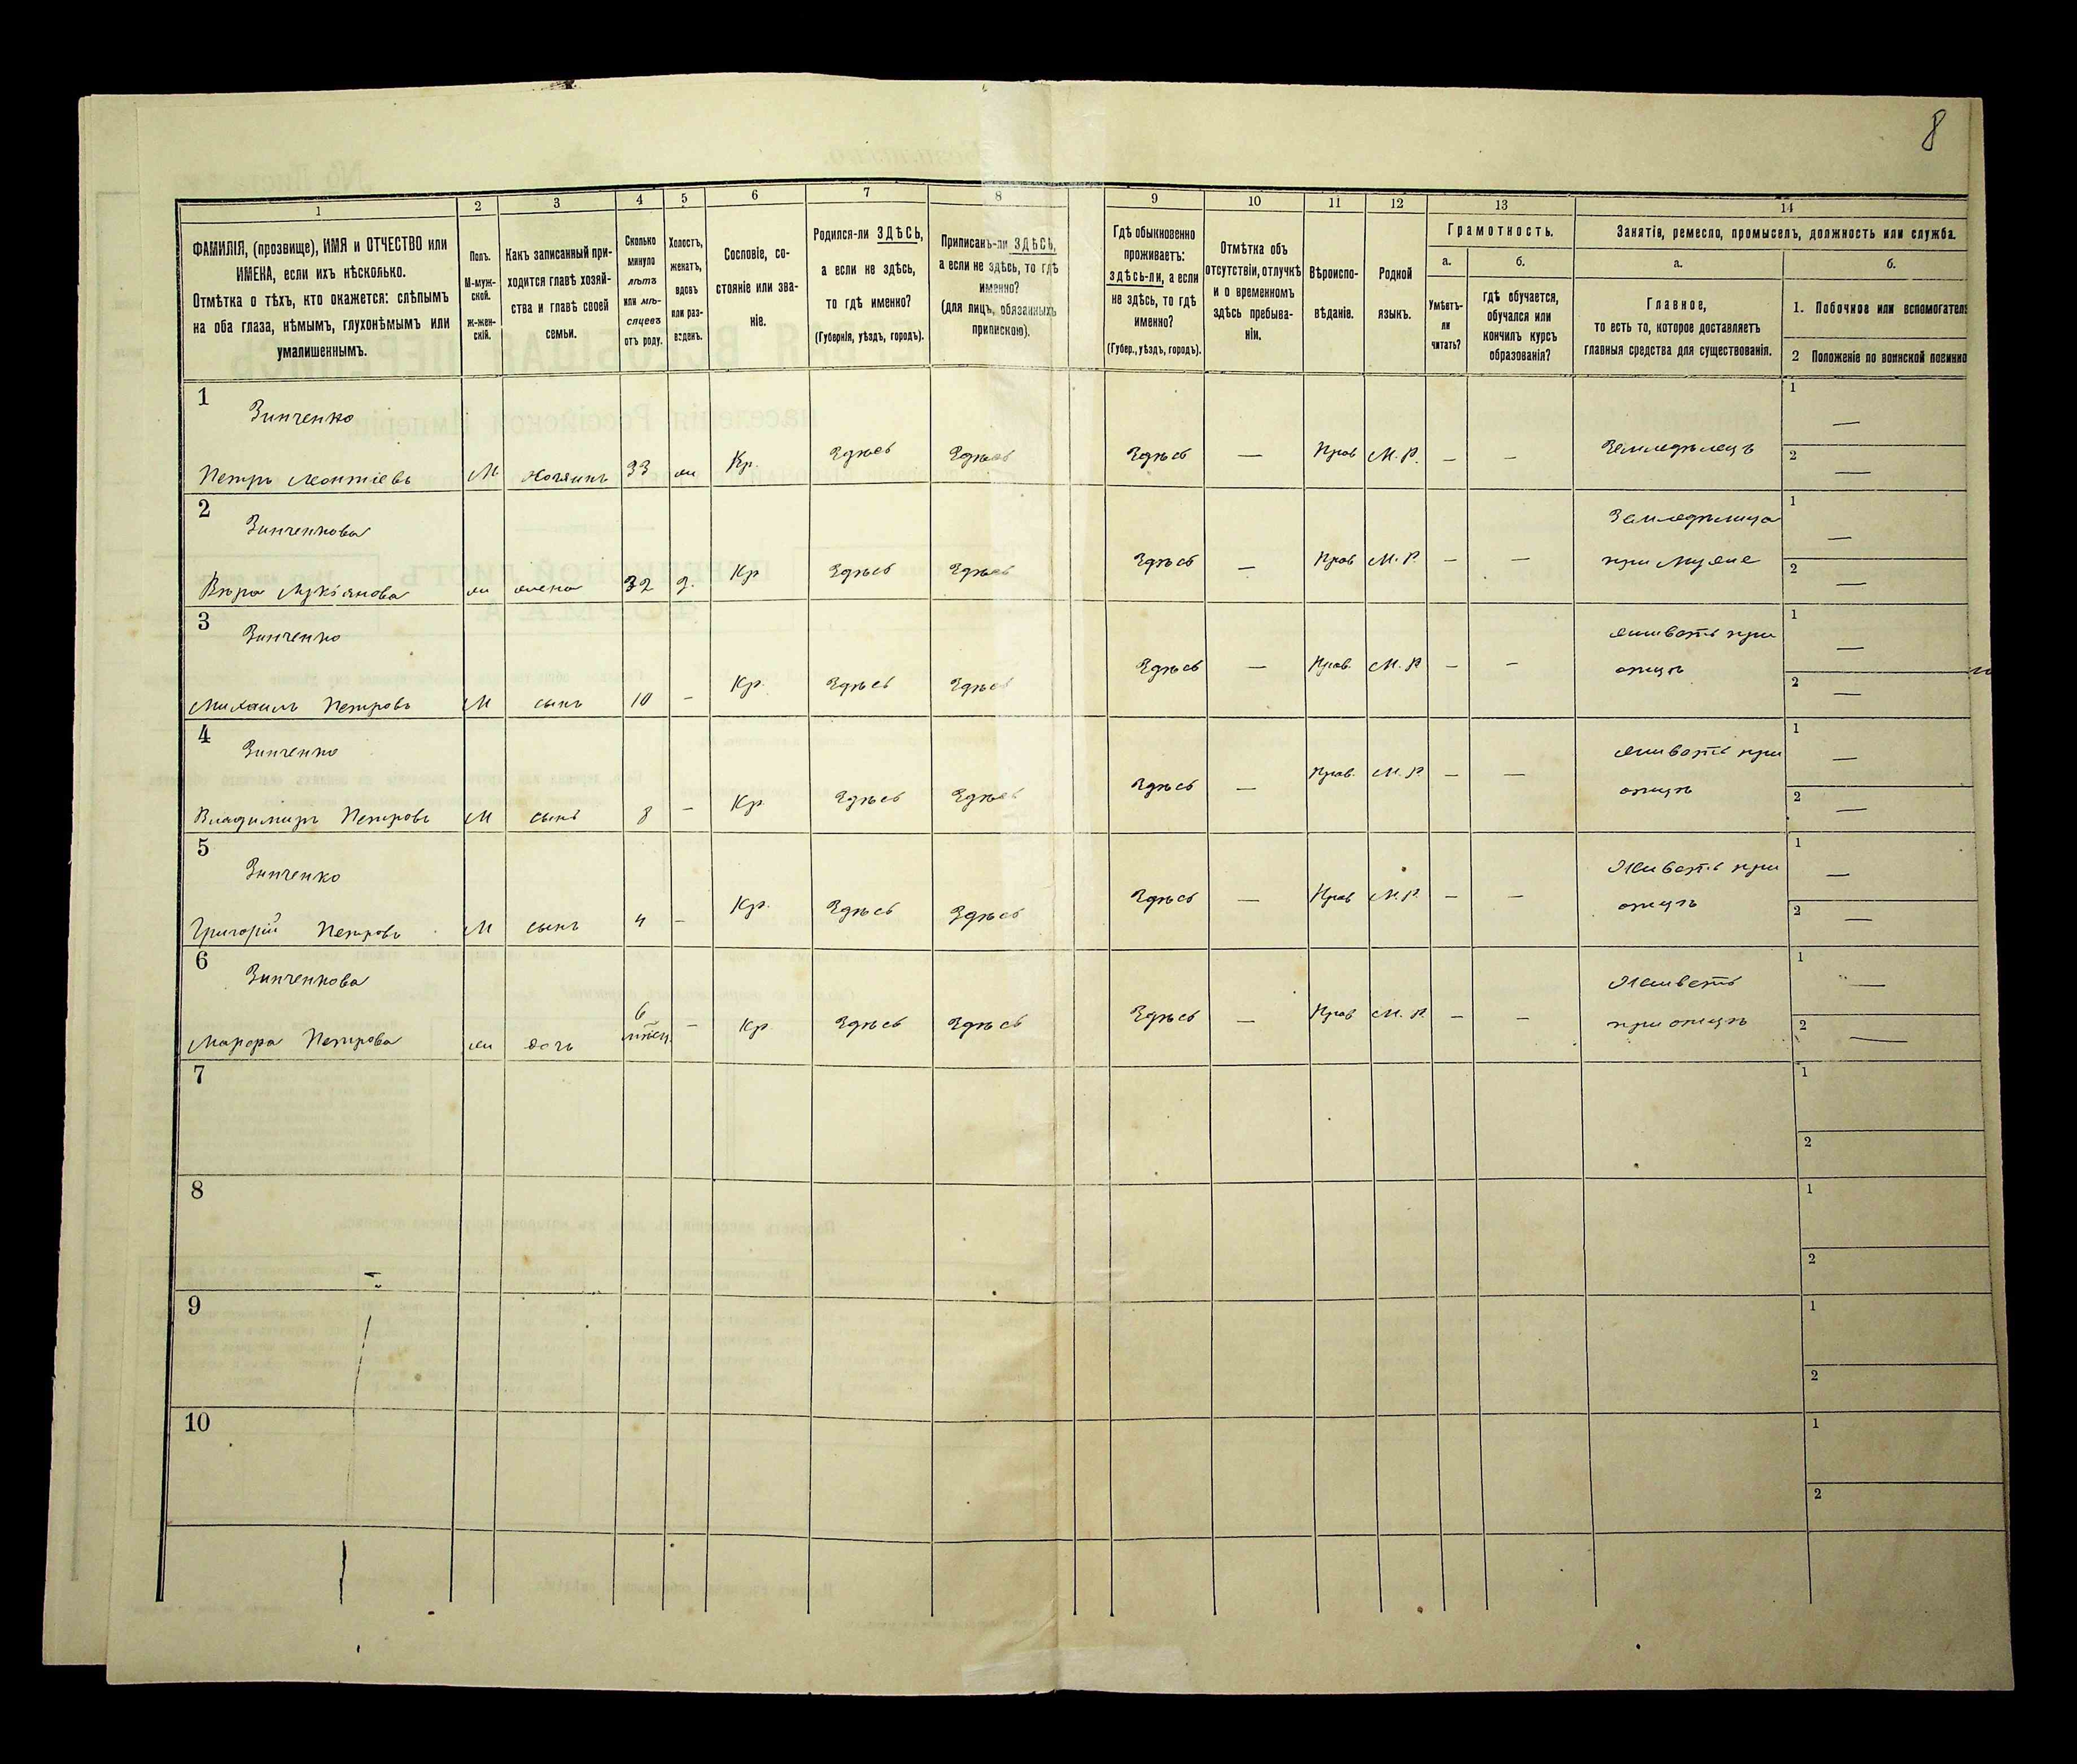 8
1 2 3 4 5 6 7 8 9 10 11 12 13 14
ФАМИЛІЯ, (прозвище), ИМЯ и ОТЧЕСТВО или
ИМЕНА, если ихъ нѣсколько.
Отмѣтка о тѣхъ, кто окажется: слѣпымъ
на оба глаза, нѣмымъ, глухонѣмымъ или
умалишеннымъ.
Полъ.
М-муж-
ской.
Ж-жен-
скій.
Какъ записанный при-
ходится главѣ хозяй-
ства и главѣ своей
семьи.
Сколько
минуло
лѣтъ
или мѣ-
сяцевъ
отъ роду.
Холостъ,
женатъ,
вдовъ
или раз-
веденъ.
Сословіе, со-
стояніе или зва-
ніе.
Родился-ли ЗДѢСЬ,
а если не здѣсь,
то гдѣ именно?
(Губернія, уѣздъ, городъ).
Приписанъ-ли ЗДѢСЬ,
а если не здѣсь, то гдѣ
именно?
(для лицъ, обязанныхъ
припискою).
Гдѣ обыкновенно
проживаетъ:
здѣсь-ли, а если
не здѣсь, то гдѣ
именно?
(Губер., уѣздъ, городъ).
Отмѣтка объ
отсутствіи, отлучкѣ
и о временномъ
здѣсь пребыва-
ніи.
Вѣроиспо-
вѣданіе.
Родной
языкъ.
Грамотность.
а.
Умѣетъ-
ли
читать?
б.
гдѣ обучается,
обучался или
кончилъ курсъ
образованія?
Занятіе, ремесло, промыселъ, должность или служба.
а.
Главное,
то есть то, которое доставляетъ
главныя средства для существованія.
б.
1. Побочное или вспомогатель
2 Положеніе по воинской повинно
1
Зинченко
Петръ Леонтіевъ М Хозяинъ 33 ж Кр. Здѣсь Здѣсь Здѣсь — Прав М.Р. — — Земледѣлецъ 1 — 2 —
2
Зинченкова
Вѣра Лукіянова ж жена 32 з. Кр Здѣсь Здѣсь Здѣсь — Прав М.Р. — — Земледѣлица
при мужѣ 1 — 2 —
3
Зинченко
Михаилъ Петровъ М сынъ 10 - Кр. Здѣсь Здѣсь Здѣсь — Прав. М.Р. — — живетъ при
отцѣ 1 — 2 —
4
Зинченко
Владимиръ Петровъ М сынъ 8 - Кр Здѣсь Здѣсь Здѣсь — Прав. М.Р. — — живетъ при
отцѣ 1 — 2 —
5
Зинченко
Григорій Петровъ М сынъ 4 - Кр. Здѣсь Здѣсь Здѣсь — Прав М.Р. — — Живетъ при
отцѣ 1 — 2 —
6
Зинченкова
Петрова ж дочь 6
мѣсяц. - Кр. Здѣсь Здѣсь Здѣсь — Прав М.Р. — — Живетъ
при отцѣ 1 — 2 —
7 1 2
8 1 2
9 1 2
10 1 2